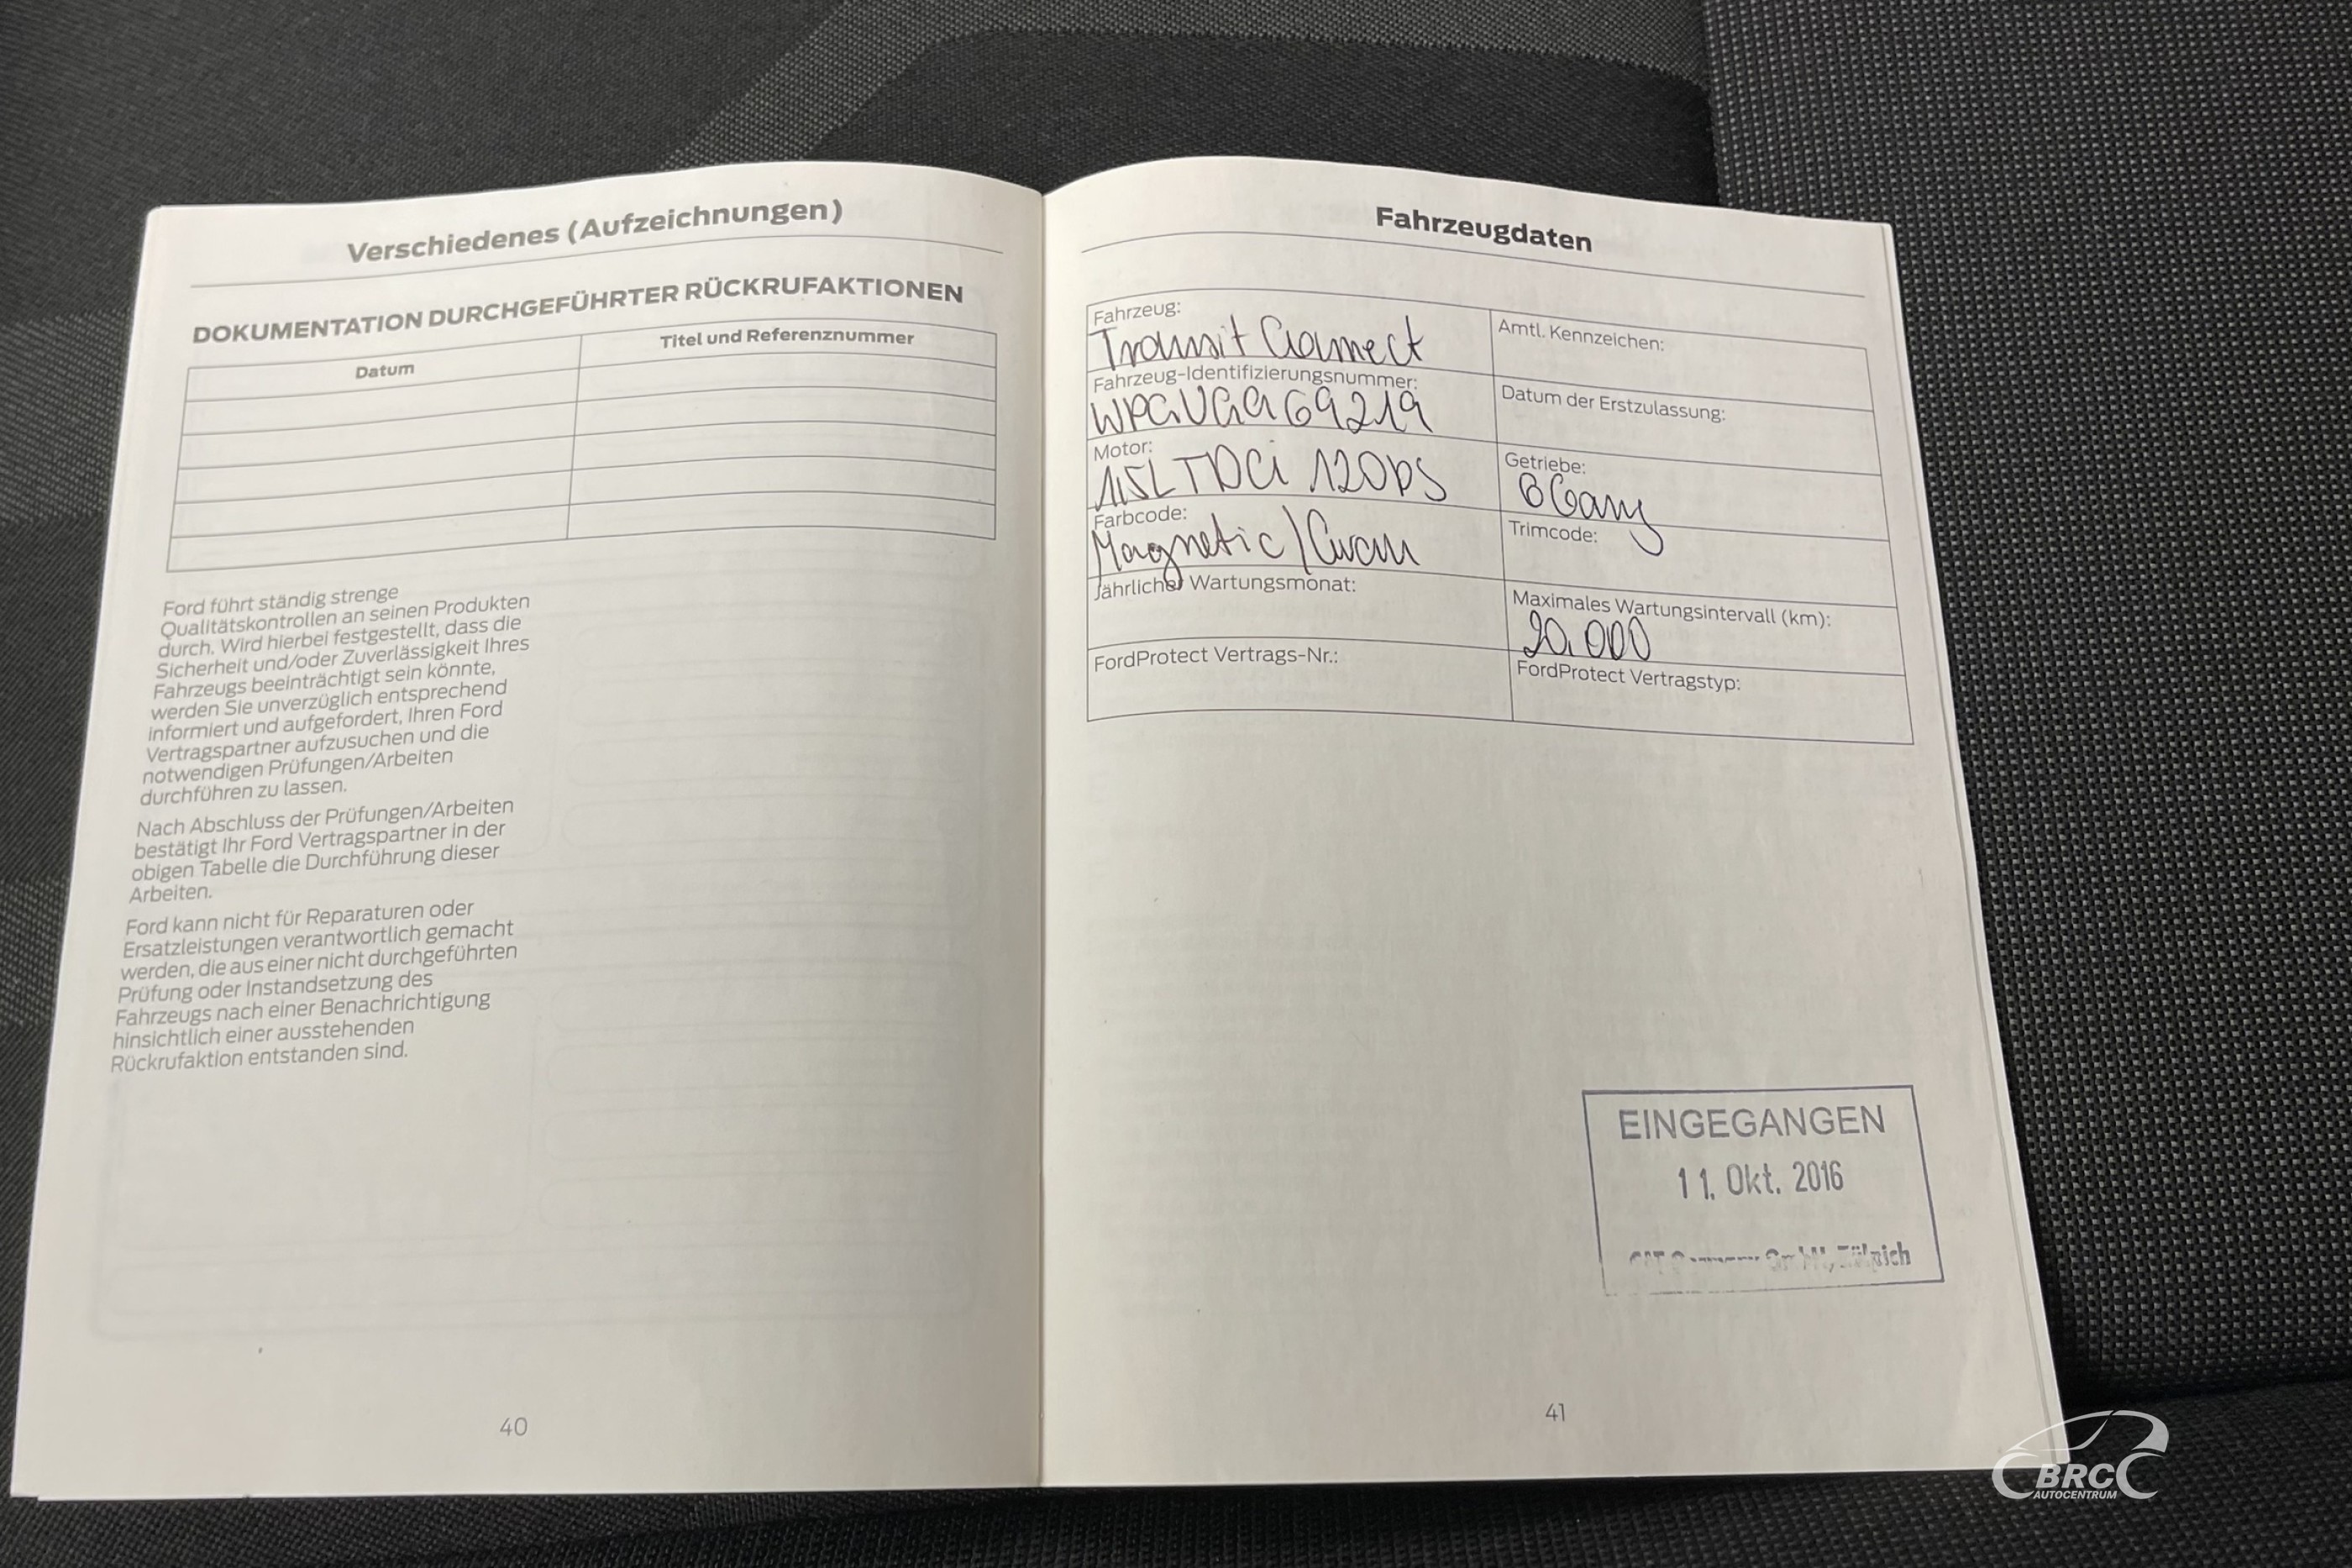 Verschiedenes (Aufzeichnungen)
DOKUMENTATION DURCHGEFÜHRTER RÜCKRUFAKTIONEN
Datum
Titel und Referenznummer
Ford führt ständig strenge
Qualitätskontrollen an seinen Produkten
durch. Wird hierbei festgestellt, dass die
Sicherheit und/oder Zuverlässigkeit Ihres
Fahrzeugs beeinträchtigt sein könnte,
werden Sie unverzüglich entsprechend
informiert und aufgefordert, Ihren Ford
Vertragspartner aufzusuchen und die
notwendigen Prüfungen/Arbeiten
durchführen zu lassen.
Nach Abschluss der Prüfungen/Arbeiten
bestätigt Ihr Ford Vertragspartner in der
obigen Tabelle die Durchführung dieser
Arbeiten.
Ford kann nicht für Reparaturen oder
Ersatzleistungen verantwortlich gemacht
werden, die aus einer nicht durchgeführten
Prüfung oder Instandsetzung des
Fahrzeugs nach einer Benachrichtigung
hinsichtlich einer ausstehenden
Rückrufaktion entstanden sind.
40
Fahrzeugdaten
Fahrzeug:
Transit Connect
Amtl. Kennzeichen:
Fahrzeug-Identifizierungsnummer:
Datum der Erstzulassung:
Motor:
1,5L TDCi 120PS
Getriebe:
6 Gang
Farbcode:
Magnetic/
Trimcode:
Jährlicher Wartungsmonat:
Maximales Wartungsintervall (km):
20.000
FordProtect Vertrags-Nr.:
FordProtect Vertragstyp:
EINGEGANGEN
11. Okt. 2016
41
BRC
AUTOCENTRUM